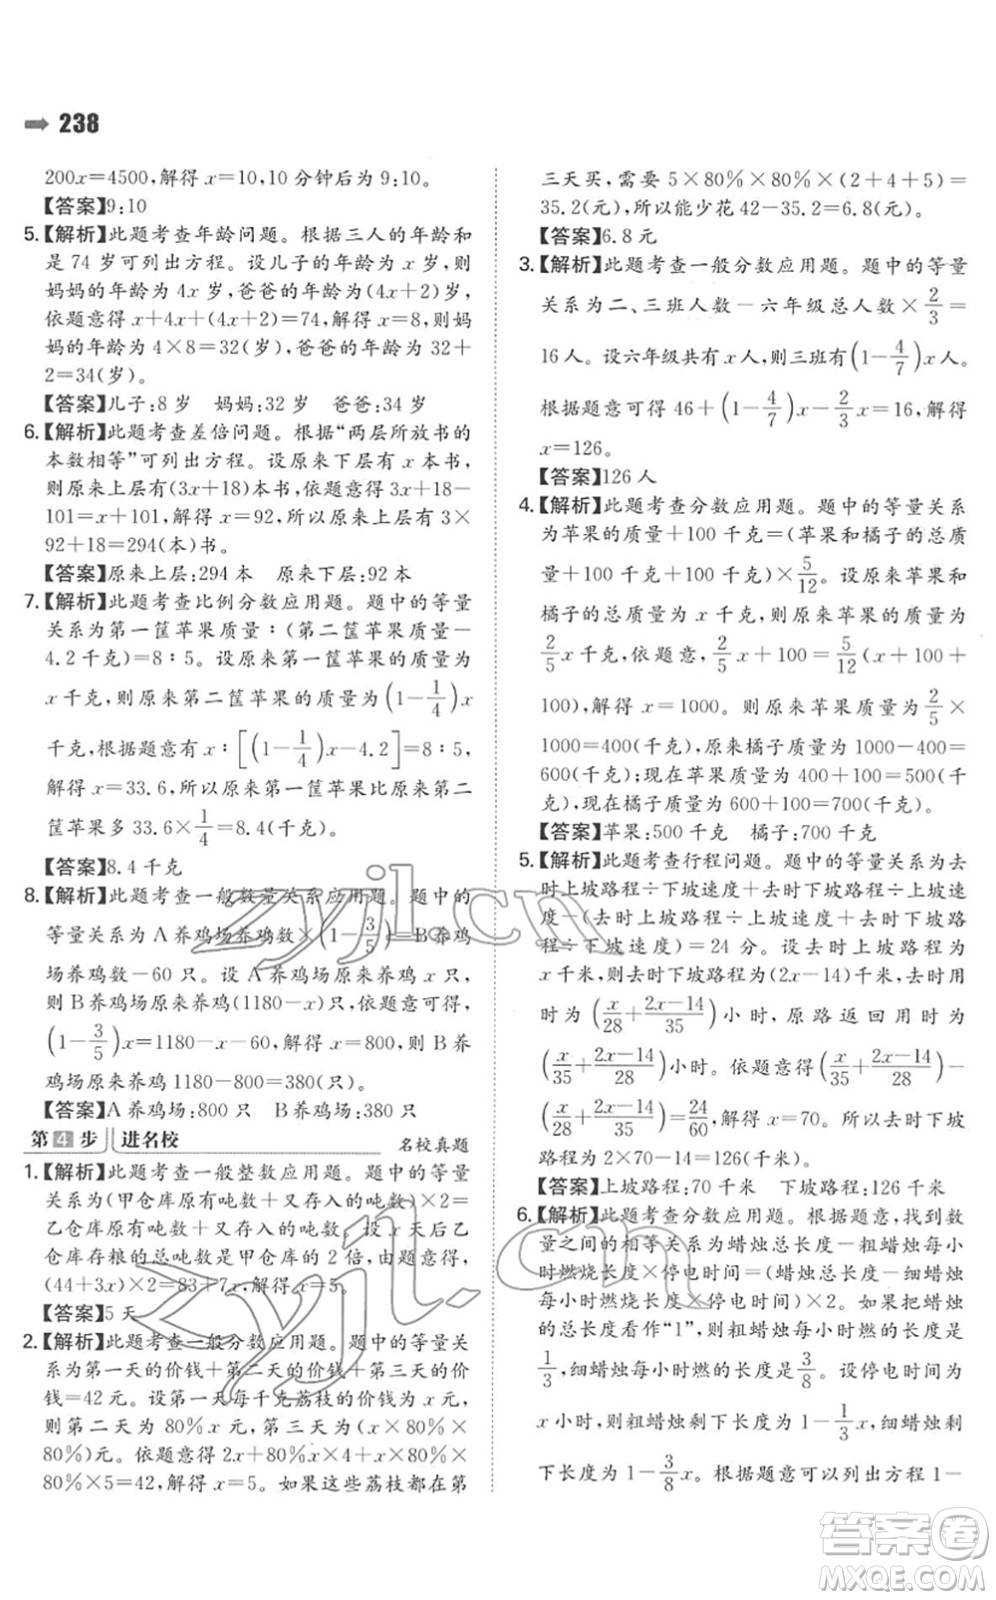 238
200x=4500,解得 x=10,10 分钟后为 9:10。
【答案】9:10
5.【解析】此题考查年龄问题。根据三人的年龄和
是 74 岁可列出方程。设儿子的年龄为 x 岁,则
妈妈的年龄为 4x 岁,爸爸的年龄为(4x+2)岁,
依题意得 x+4x+(4x+2)=74,解得 x=8,则妈
妈的年龄为 4×8=32(岁),爸爸的年龄为 32+
2=34(岁)。
【答案】儿子:8 岁 妈妈:32 岁 爸爸:34 岁
6.【解析】此题考查差倍问题。根据“两层所放书的
本数相等”可列出方程。设原来下层有 x 本书,
则原来上层有(3x+18)本书,依题意得 3x+18-
101=x+101,解得 x=92,所以原来上层有 3×
92+18=294(本)书。
【答案】原来上层:294 本 原来下层:92 本
7.【解析】此题考查比例分数应用题。题中的等量
关系为第一筐苹果质量:(第二筐苹果质量-
4.2 千克)=8:5。设原来第一筐苹果的质量为
x 千克,则原来第二筐苹果的质量为(1-1/4)x
千克,根据题意有 x:[(1-1/4)x-4.2]=8:5,
解得 x=33.6,所以原来第一筐苹果比原来第二
筐苹果多 33.6×1/4=8.4(千克)。
【答案】8.4 千克
8.【解析】此题考查一般数量关系应用题。题中的
等量关系为 A 养鸡场养鸡数×(1-3/5)=B 养鸡
场养鸡数-60 只。设 A 养鸡场原来养鸡 x 只,
则 B 养鸡场原来养鸡(1180-x)只,依题意可得
(1-3/5)x=1180-x-60,解得 x=800,则 B 养
鸡场原来养鸡 1180-800=380(只)。
【答案】A 养鸡场:800 只 B 养鸡场:380 只
第4步 进名校 名校真题
1.【解析】此题考查一般整数应用题。题中的等量
关系为(甲仓库原有吨数+又存入的吨数)×2=
乙仓库原有吨数+又存入的吨数。设 x 天后乙
仓库存粮的总吨数是甲仓库的 2 倍,依题意得,
(44+3x)×2=83+7x,解得 x=5。
【答案】5 天
2.【解析】此题考查一般分数应用题。题中的等量关
系为第一天的价钱+第二天的价钱+第三天的价
钱=42 元。设第一天每千克荔枝的价钱为 x 元,
则第二天为 80%x 元,第三天为(x×80%×
80%)元。依题意得 2x+80%x×4+x×80%×
80%×5=42,解得 x=5。如果这些荔枝都在第
三天买,需要 5×80%×80%×(2+4+5)=
35.2(元),所以能少花 42-35.2=6.8(元)。
【答案】6.8 元
3.【解析】此题考查一般分数应用题。题中的等量
关系为二、三班人数-六年级总人数×2/3=
16 人。设六年级共有 x 人,则三班有(1-4/7)x人。
根据题意可得 46+(1-4/7)x-2/3x=16,解得
x=126。
【答案】126 人
4.【解析】此题考查分数应用题。题中的等量关系
为苹果的质量+100 千克=(苹果和橘子的总质
量+100 千克+100 千克)×5/12。设原来苹果和
橘子的总质量为 x 千克,则原来苹果的质量为
2/5x 千克。依题意,2/5x+100=5/12(x+100+
100),解得 x=1000。则原来苹果质量为2/5×
1000=400(千克),原来橘子质量为 1000-400=
600(千克);现在苹果质量为 400+100=500(千
克),现在橘子质量为 600+100=700(千克)。
【答案】苹果:500 千克 橘子:700 千克
5.【解析】此题考查行程问题。题中的等量关系为去
时上坡路程÷下坡速度+去时下坡路程÷上坡速度
-(去时上坡路程÷上坡速度+去时下坡路
程÷下坡速度)=24 分。设去时上坡路程为
x 千米,则去时下坡路程为(2x-14)千米,去时用
时为(x/28+2x-14/35)小时,原路返回用时为
(x/35+2x-14/28)小时。依题意得(x/35+2x-14/28)
-(x/28+2x-14/35)=24/60,解得 x=70。则去时下坡
路程为 2×70-14=126(千米)。
【答案】上坡路程:70 千米 下坡路程:126 千米
6.【解析】此题考查分数应用题。根据题意,找到数
量之间的相等关系为蜡烛总长度-粗蜡烛每小
时燃烧长度×停电时间=(蜡烛总长度-细蜡烛
每小时燃烧长度×停电时间)×2。如果把蜡烛
的总长度看作“1”,则粗蜡烛每小时燃的长度是
1/3,细蜡烛每小时燃的长度是3/8。设停电时间为
x 小时,则粗蜡烛剩下长度为 1-1/3x,细蜡烛剩
下长度为 1-3/8x。根据题意可以列出方程 1-
zyjl.cn
zyjl.cn
答案圈
MXQE.COM